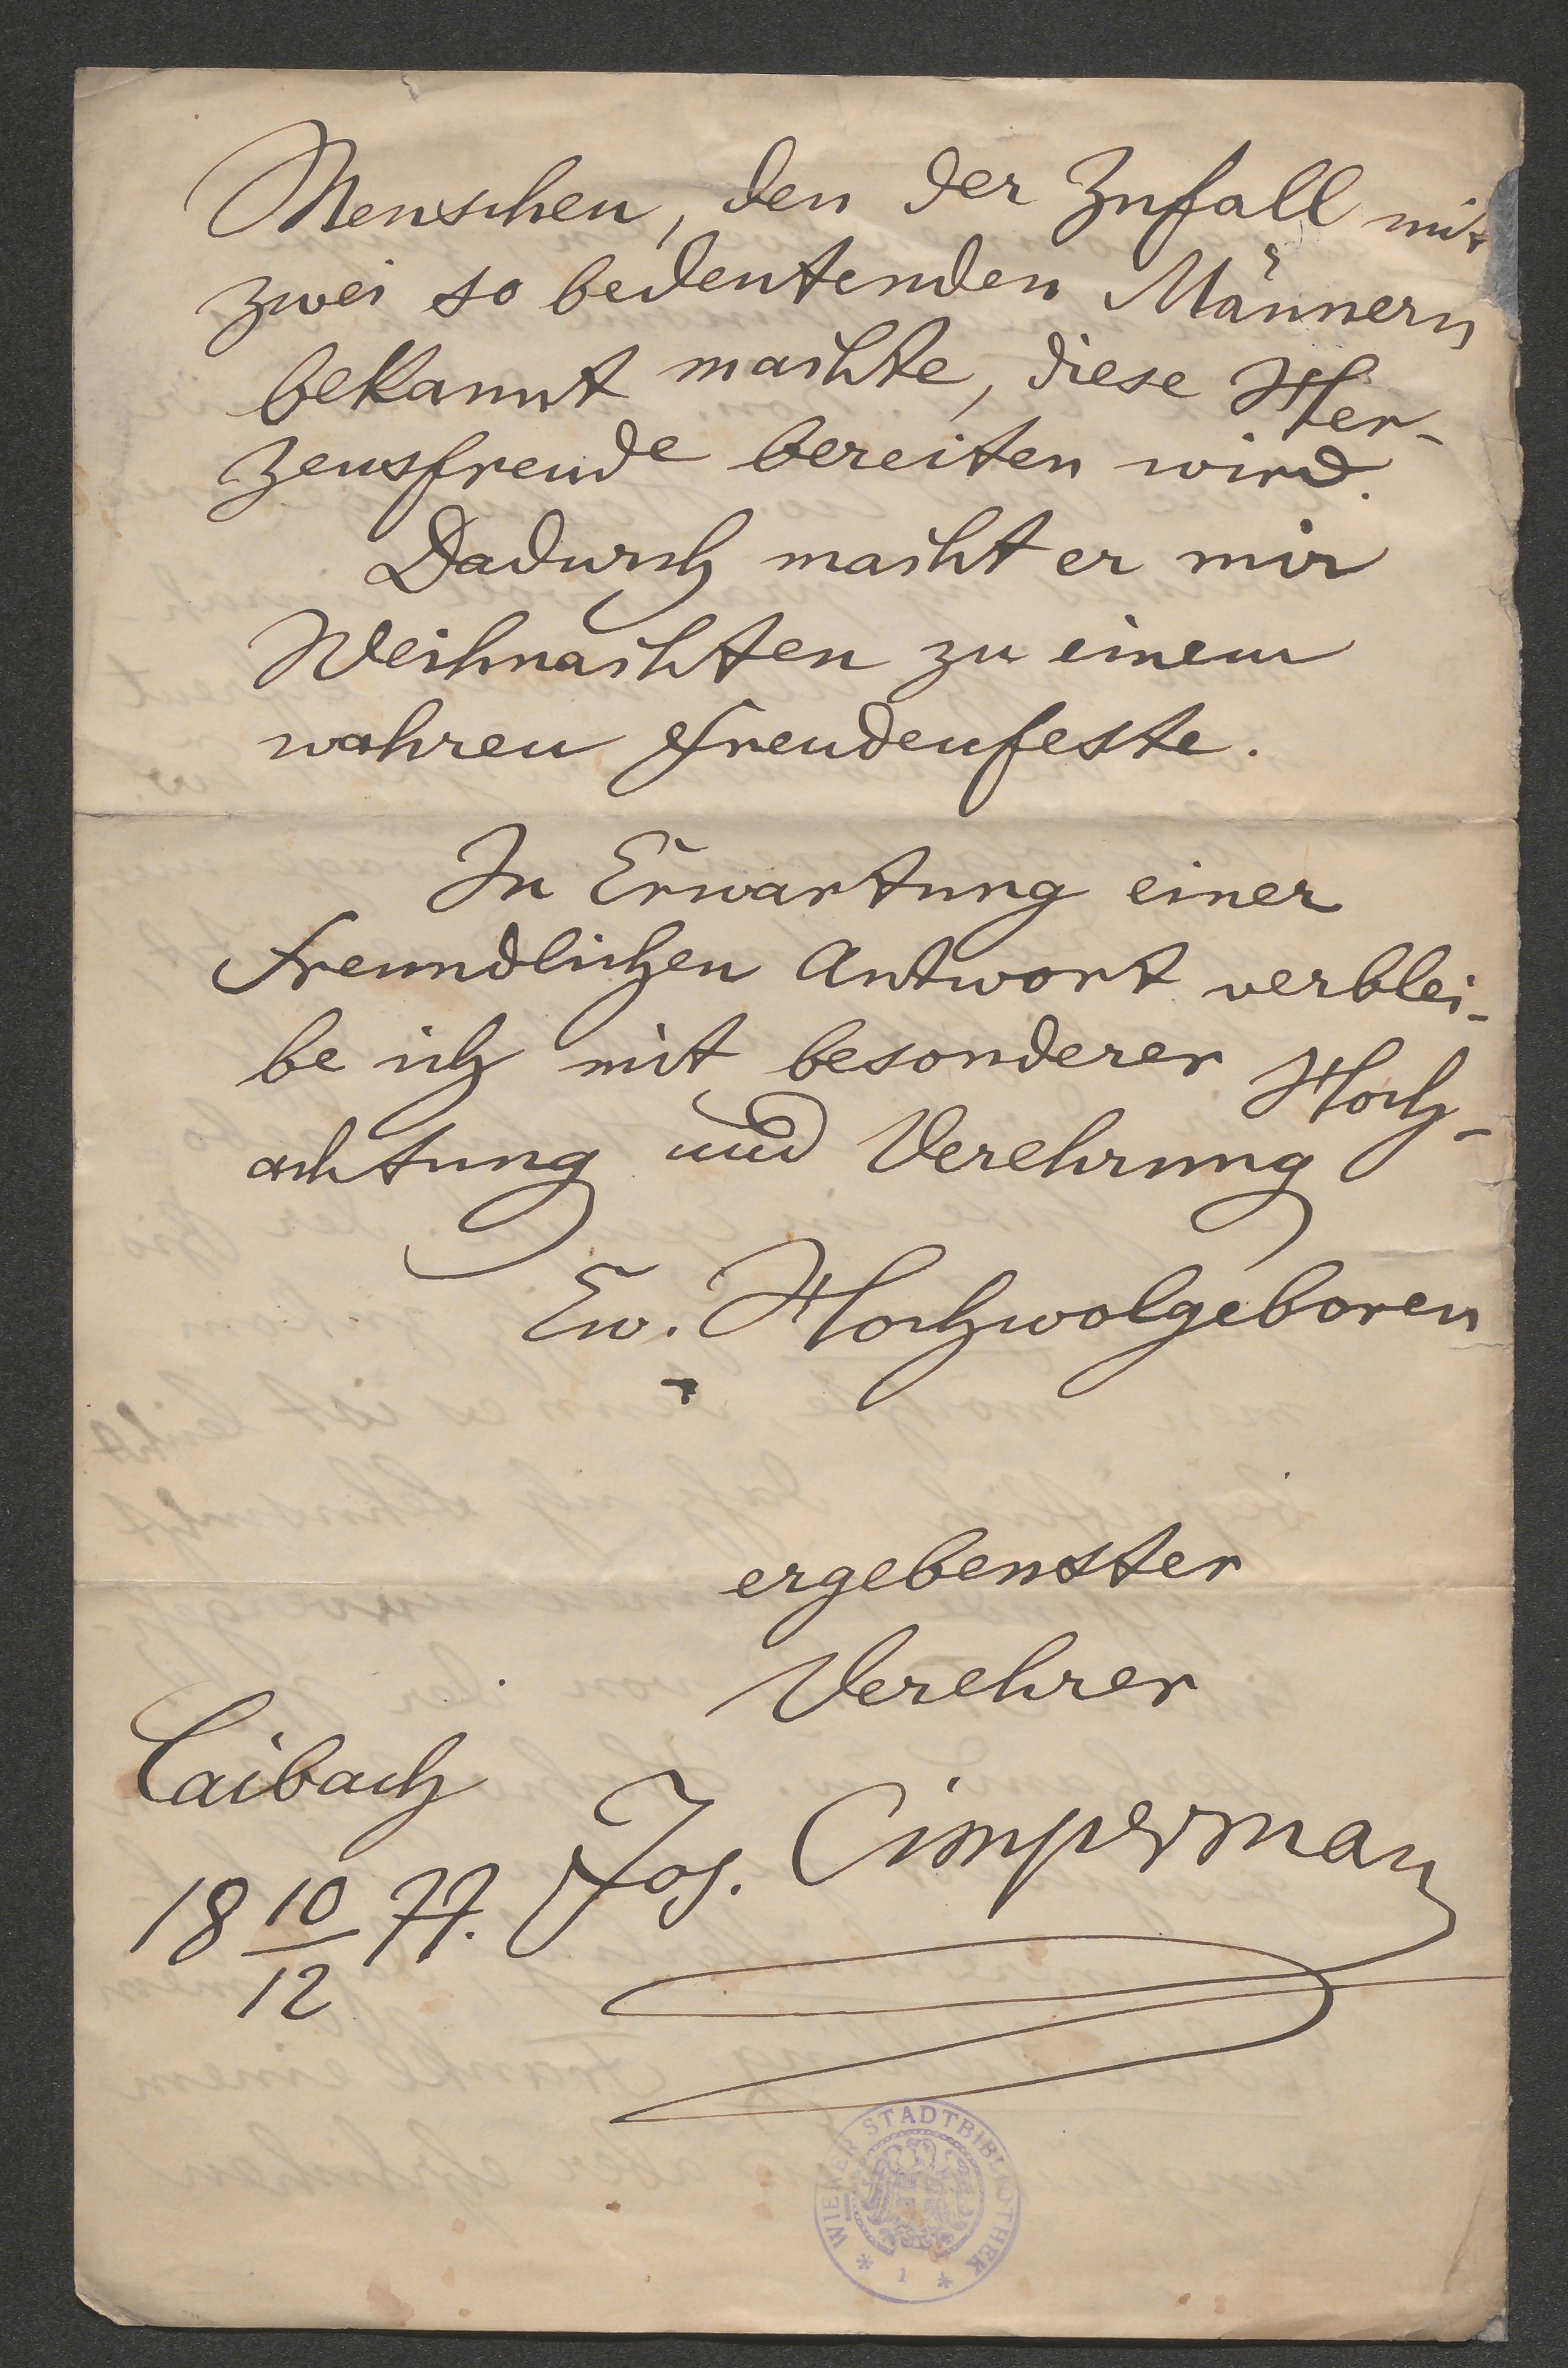 Menschen, den der Zufall mit
zwei so bedeutenden Männern
bekannt machte, diese Her-
zensfreude bereiten wird.
Dadurch macht er mir
Weihnachten zu einem
wahren Freudenfeste.
In Erwartung einer
freundlichen Antwort verblei-
be ich mit besonderer Hoch-
achtung und Verehrung
Ew. Hochwolgeboren
ergebenster
Verehrer
Laibach
18 10/12 77. Jos. Cimperman
WIENER STADTBIBLIOTHEK
* 1 *